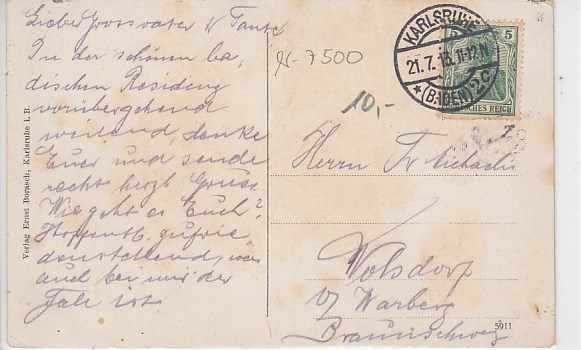 Lieber Grossvater u Tante
In der schönen ba-
dischen Residenz
vorübergehend
weilend, denke
Euer und sende
recht herzl Gruss.
Wie geht es Euch?
Hoffentl. zufrie-
denstellend, was
auch bei mir der
Fall ist
Verlag Ernst Borasch, Karlsruhe i. B.
7500
10,-
KARLSRUHE
21.7.15. 11-12 N
★ (BADEN) 2 C
5
DEUTSCHES REICH
Herrn Fr
Volsdorf
b/ Warberg
Braunschweig
5911